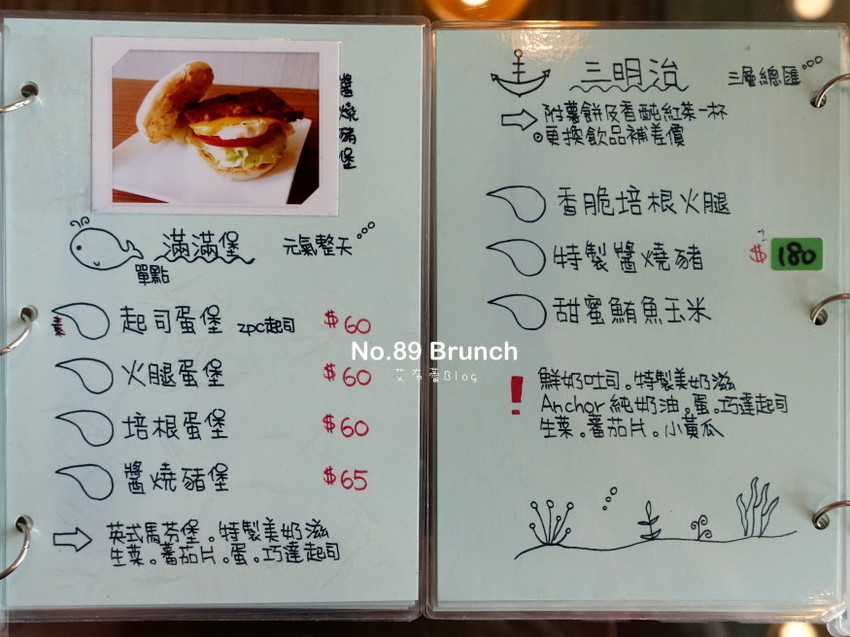 醬燒豬堡
滿滿堡 元氣整天
單點
素 起司蛋堡 2pc起司 $60
火腿蛋堡 $60
培根蛋堡 $60
醬燒豬堡 $65
英式馬芬堡。特製美奶滋
生菜。蕃茄片。蛋。巧達起司
三明治 三層總匯
附薯餅及香醇紅茶一杯
。更換飲品補差價
香脆培根火腿
特製醬燒豬 $180
甜蜜鮪魚玉米
! 鮮奶吐司。特製美奶滋
Anchor純奶油。蛋。巧達起司
生菜。蕃茄片。小黃瓜
No.89 Brunch